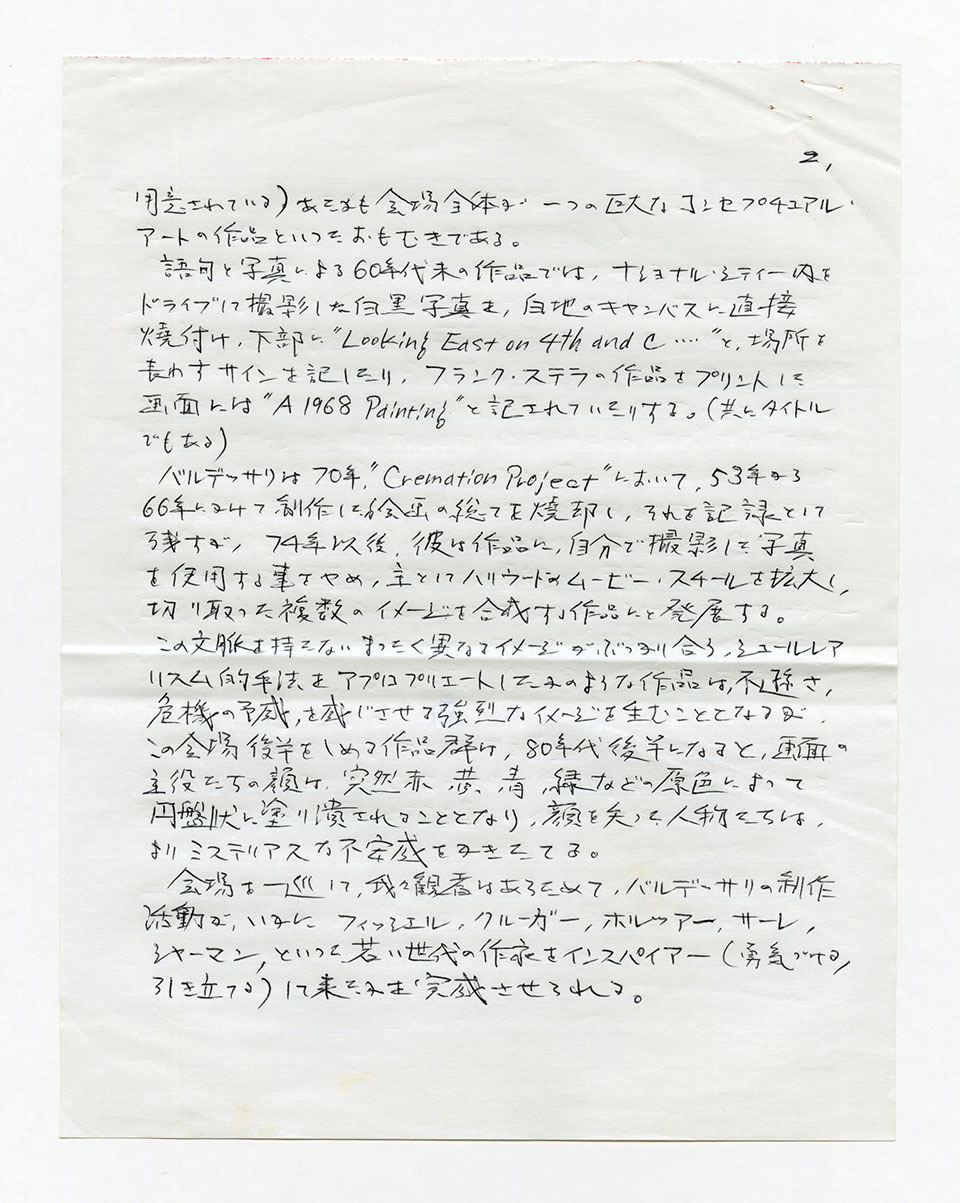 2,
用意されている)あたかも会場全体が一つの巨大なコンセプチュアル・
アートの作品といったおもむきである。
語句と写真による60年代末の作品では、ナショナル・シティー内を
ドライブして撮影した白黒写真を、白地のキャンバスに直接
焼付け、下部に"Looking East on 4th and C ‥‥"と、場所を
表わすサインを記したり、フランク・ステラの作品をプリントした
画面には"A 1968 Painting"と記されていたりする。(共にタイトル
でもある)
バルデッサリは70年、"Cremation Project"において、53年から
66年にかけて制作した絵画の総てを焼却し、それを記録として
残すが、74年以後、彼は作品に、自分で撮影した写真
を使用する事をやめ、主としてハリウッドのムービー・スチールを拡大し、
切り取った複数のイメージを合成する作品へと発展する。
この文脈を持たないまったく異なるイメージがぶつかり合う、シュールレア
リスム的手法をアプロプリエートしたかのような作品は、不遜さ、
危機の予感、を感じさせる強烈なイメージを生むこととなるが、
この会場後半をしめる作品群は、80年代後半になると、画面の
主役たちの顔は、突然赤、黄、青、緑などの原色によって
円盤状に塗り潰されることとなり、顔を失った人物たちは、
よりミステリアスな不安感をかきたてる。
会場を一巡して、我々観者はあらためて、バルデッサリの制作
活動が、いかにフィッシェル、クルーガー、ホルツァー、サーレ、
シャーマン、といった若い世代の作家をインスパイアー(勇気づける,
引き立てる)して来たかを完感させられる。